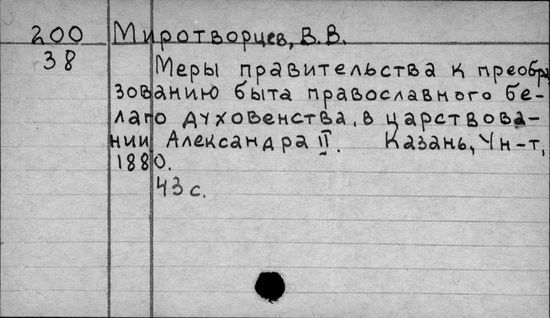 200 Миротворцев, В.В.
38 Меры правительства к преобра
зованию быта православного бе-
лаго духовенства, в царствова-
нии Александра II. Казань, Ун-т,
1880.
43 с.